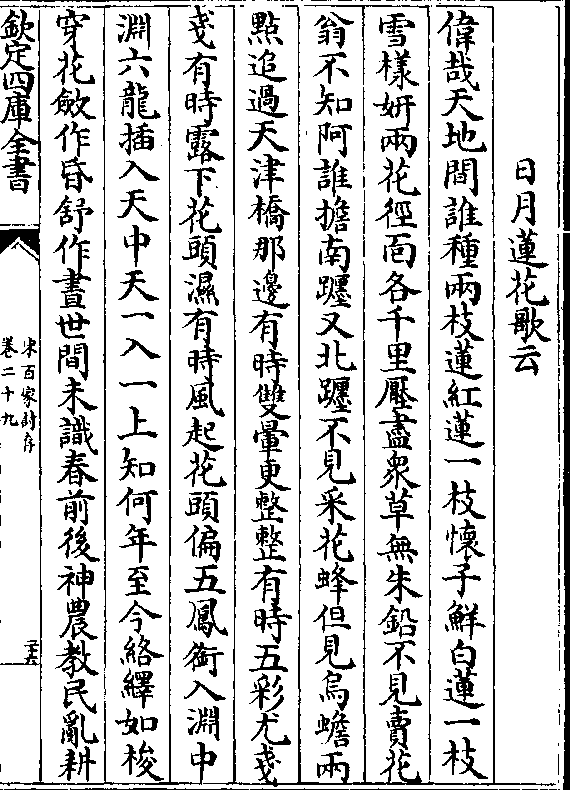 日月蓮花歌云
偉哉天地間誰種兩枝蓮紅蓮一枝懷子鮮白蓮一枝
雪樣妍兩花徑靣各千里壓盡衆草無朱鉛不見賣花
翁不知阿誰擔南躔又北躔不見采花蜂但見烏蟾兩
點追過天津橋那邊有時雙暈更整整有時五彩尤戔
戔有時露下花頭濕有時風起花頭偏五鳳銜入淵中
淵六龍插入天中天一入一上知何年至今絡繹如梭
穿花斂作昏舒作晝世間未識春前後神農教民亂耕
欽定四庫全書
宋百家詩存
卷二十九
二十六